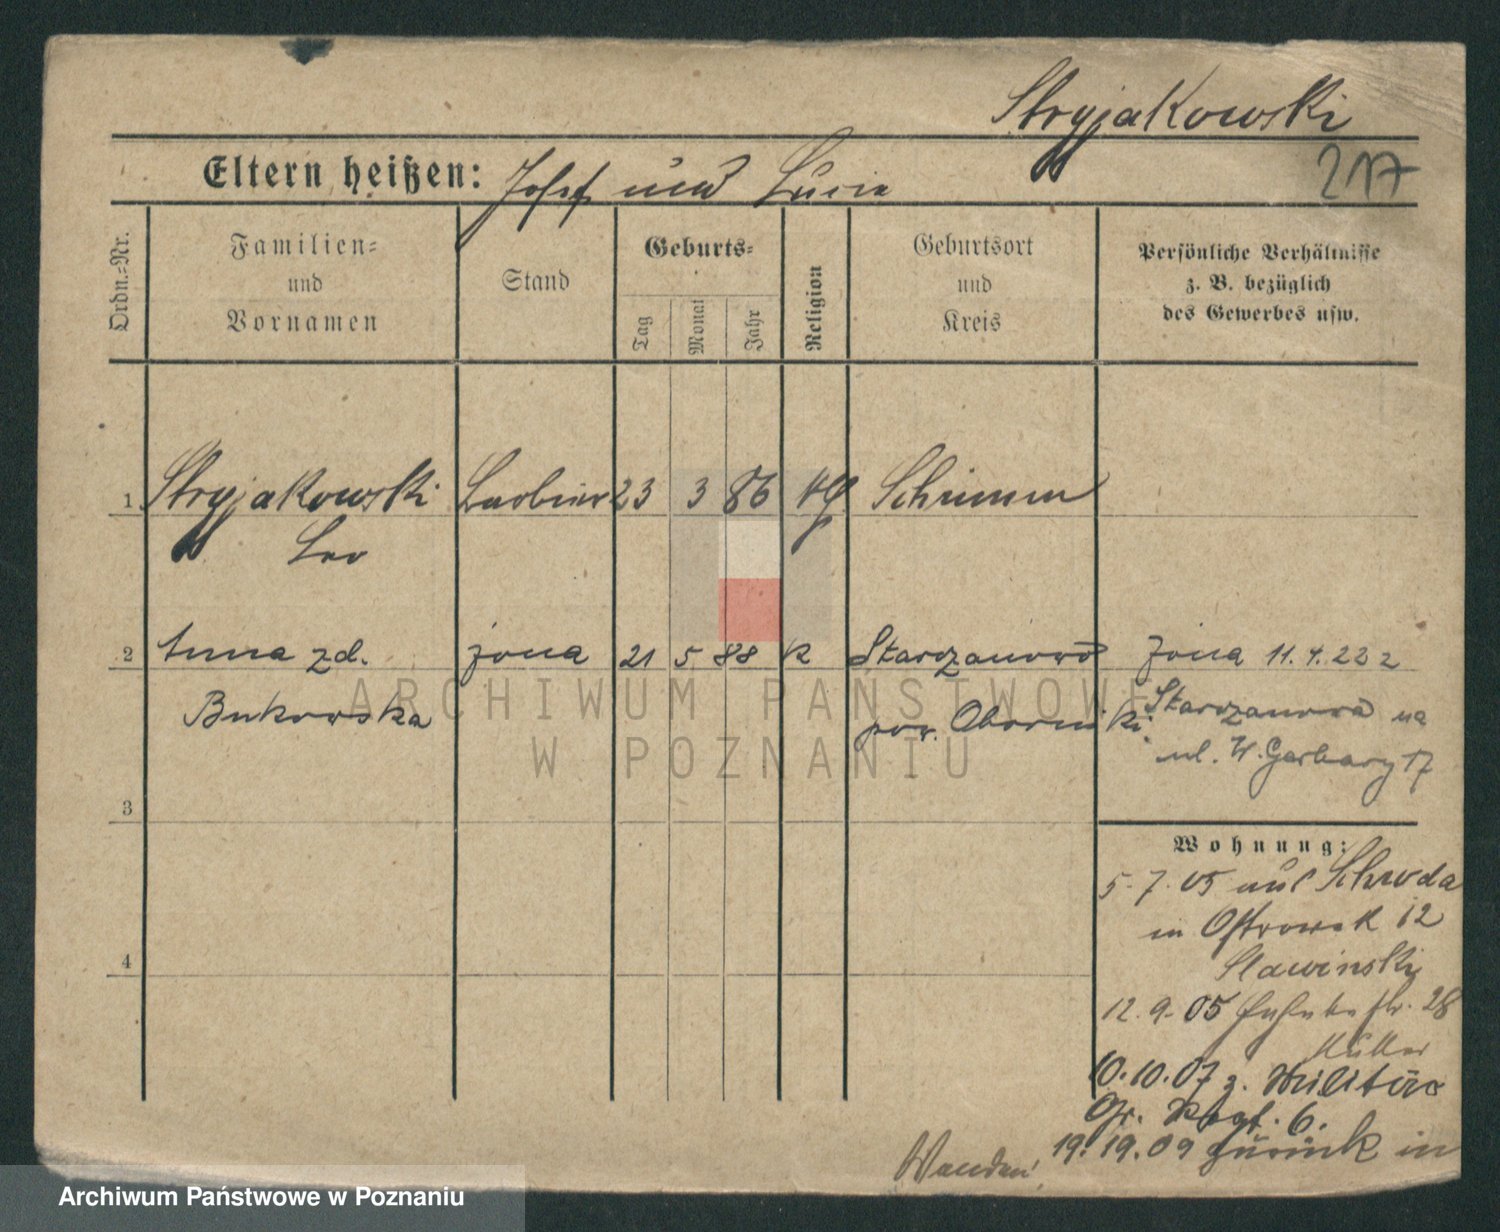 Stryjakowski
217
Eltern heißen: Josef und Lucia
Ordn.=Nr.
Familien=
und
Vornamen
Stand
Geburts=
Tag
Monat
Jahr
Religion
Geburtsort
und
Kreis
Persönliche Verhältnisse
z. B. bezüglich
des Gewerbes usw.
1 Stryjakowski Barbier 23 3 86 Schrimm
Leo
2 Anna zd. żona 21 5 88 k Starczanowo żona 11.4.22 z
Bukowska pow. Oborniki Starczanowa na
ul. W. Garbary 17
3
Wohnung:
5.7.05 aus Schroda
in Ostrowek 12
4
Slawinski
12.9.05 str. 28
Müller
10.10.07 z. Militär
Gr. Regt. 6.
19.19.09 zurück in
Wenden!
ARCHIWUM PAŃSTWOWE
W POZNANIU
Archiwum Państwowe w Poznaniu